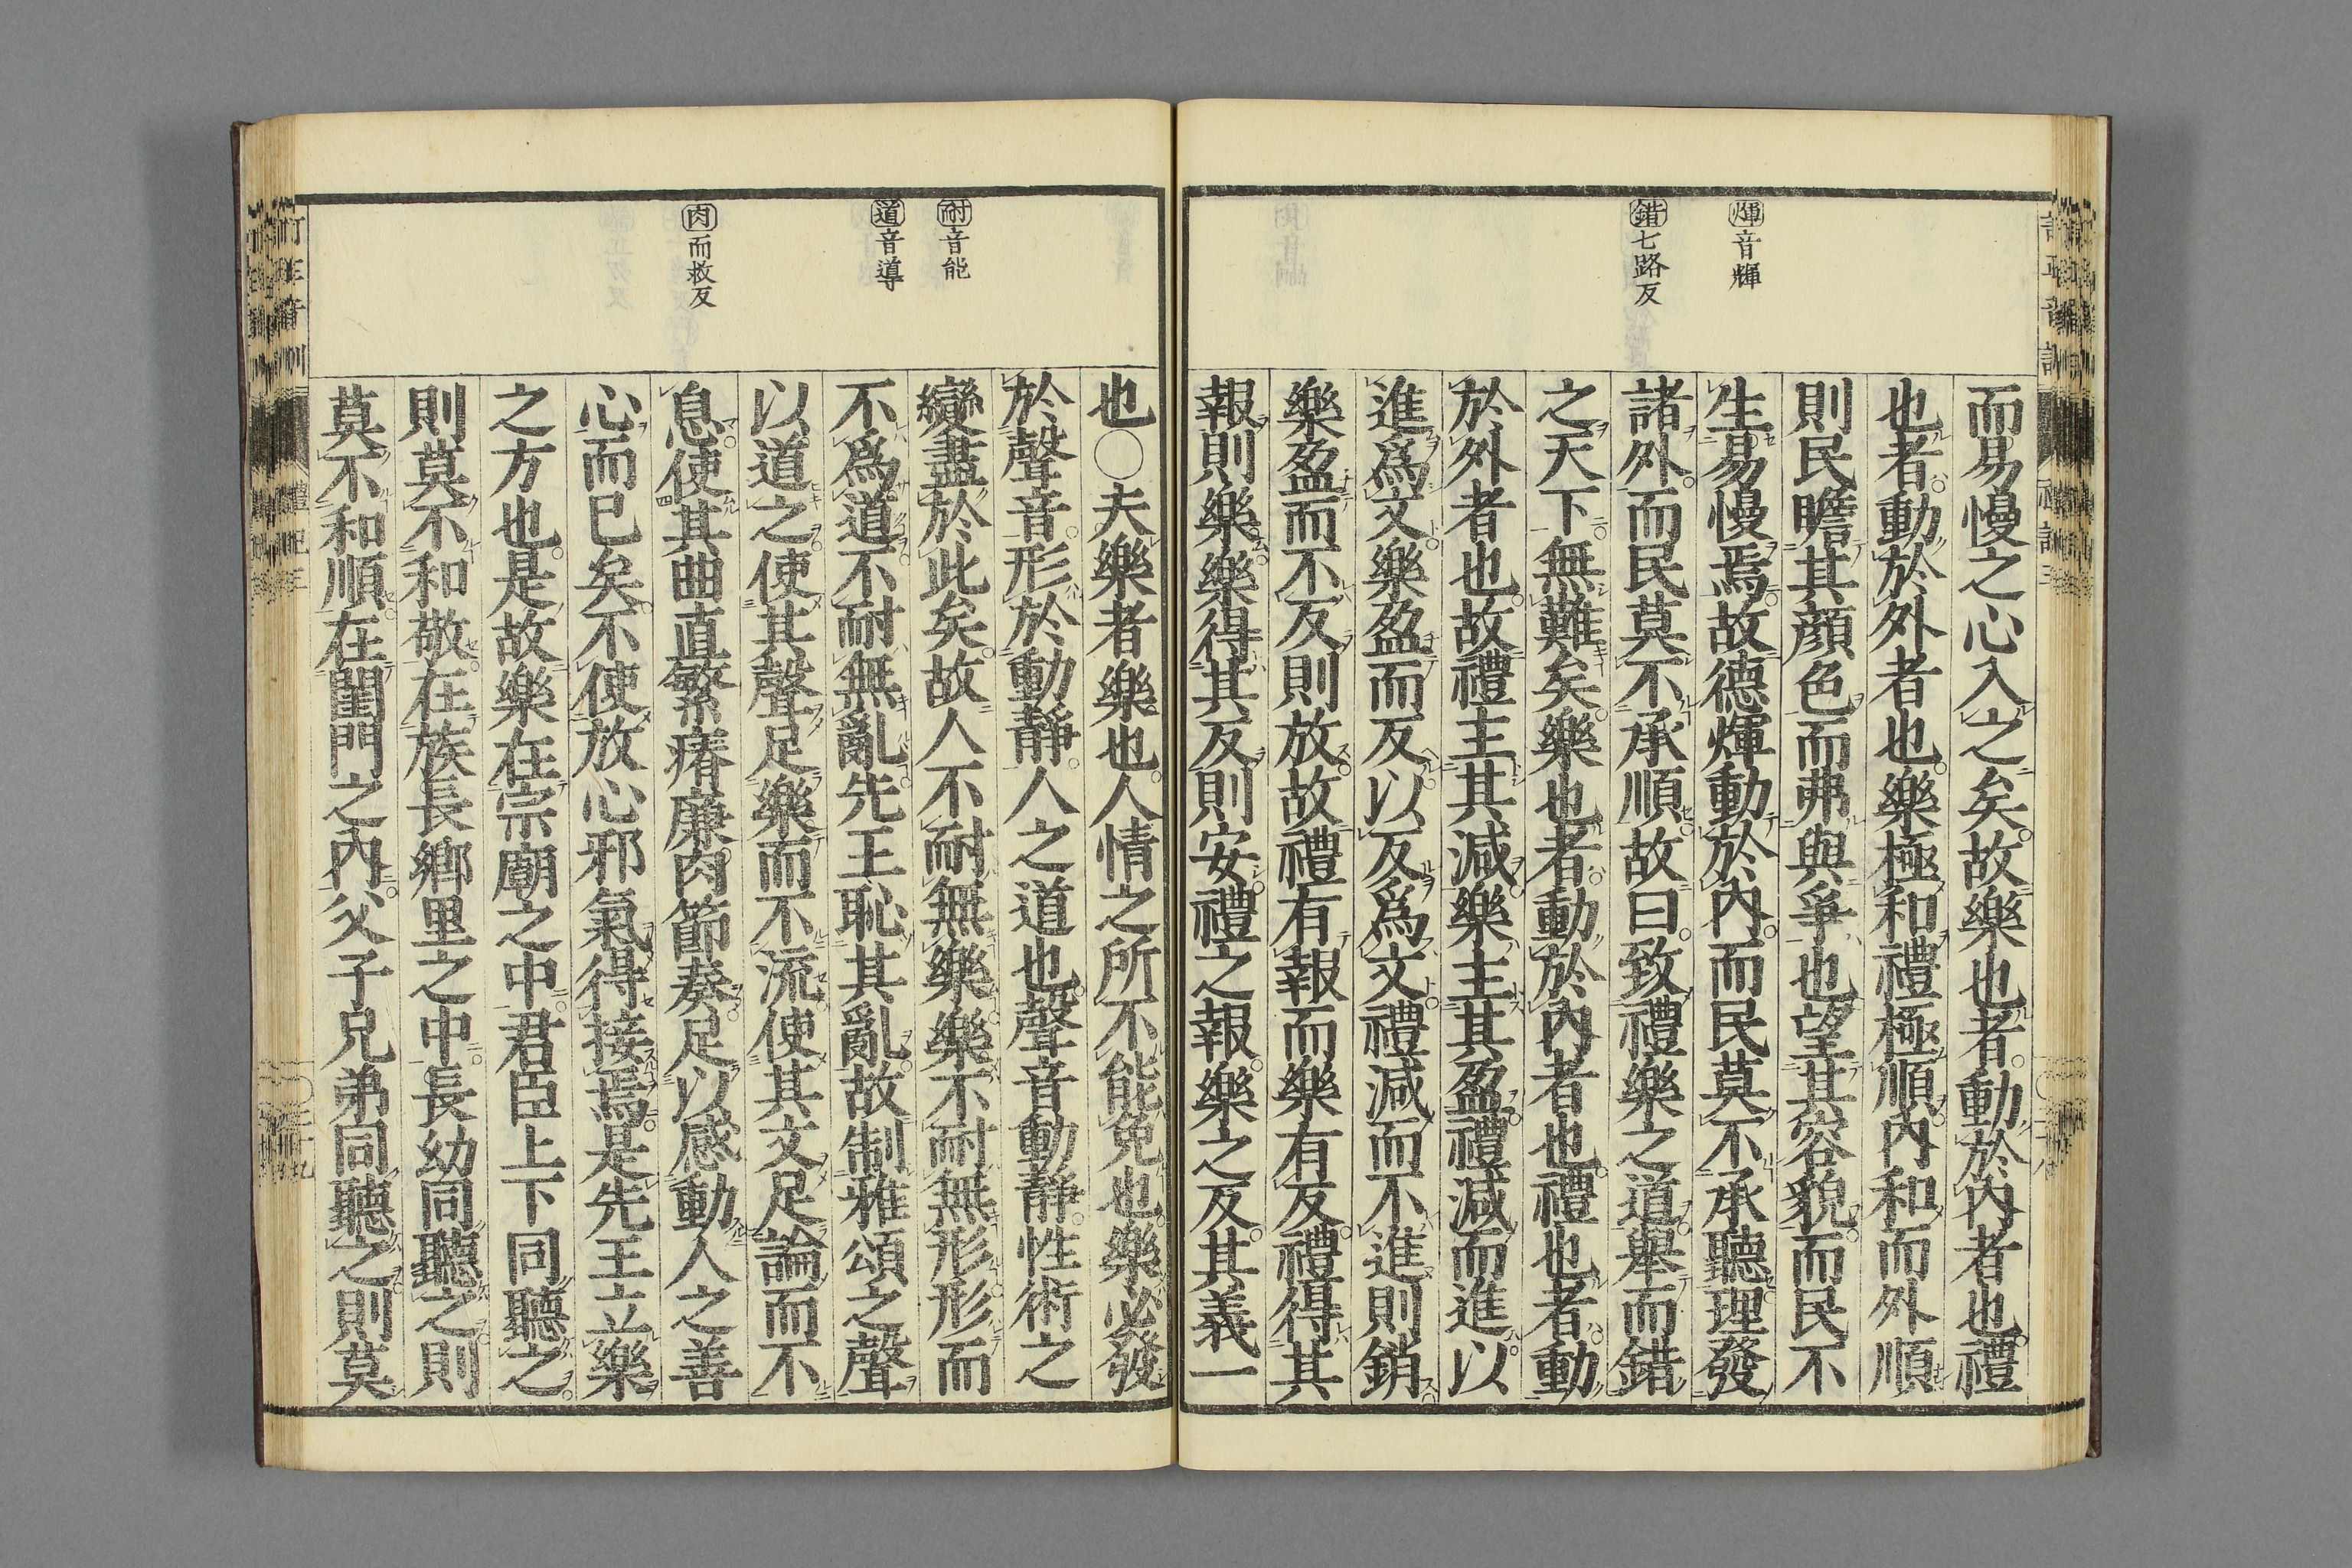 煇音輝
錯七路反
而易慢之心入之矣故樂也者動於內者也禮
也者動於外者也樂極和禮極順內和而外順
則民瞻其顏色而弗與爭也望其容貌而民不
生易慢焉故德煇動於內而民莫不承聽理發
諸外而民莫不承順故曰致禮樂之道舉而錯
之天下無難矣樂也者動於內者也禮也者動
於外者也故禮主其減樂主其盈禮減而進以
進爲文樂盈而反以反爲文禮減而不進則銷
樂盈而不反則放故禮有報而樂有反禮得其
報則樂樂得其反則安禮之報樂之反其義一
耐音能
道音導
肉而救反
也○夫樂者樂也人情之所不能免也樂必發
於聲音形於動靜人之道也聲音動靜性術之
變盡於此矣故人不耐無樂樂不耐無形形而
不爲道不耐無亂先王恥其亂故制雅頌之聲
以道之使其聲足樂而不流使其文足論而不
息使其曲直繁瘠廉肉節奏足以感動人之善
心而已矣不使放心邪氣得接焉是先王立樂
之方也是故樂在宗廟之中君臣上下同聽之
則莫不和敬在族長鄉里之中長幼同聽之則
莫不和順在閨門之內父子兄弟同聽之則莫